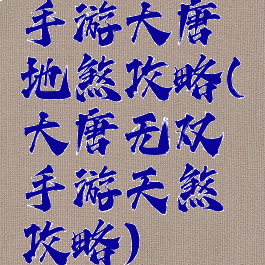 手游大唐
地煞攻略(
大唐无双
手游天煞
攻略)